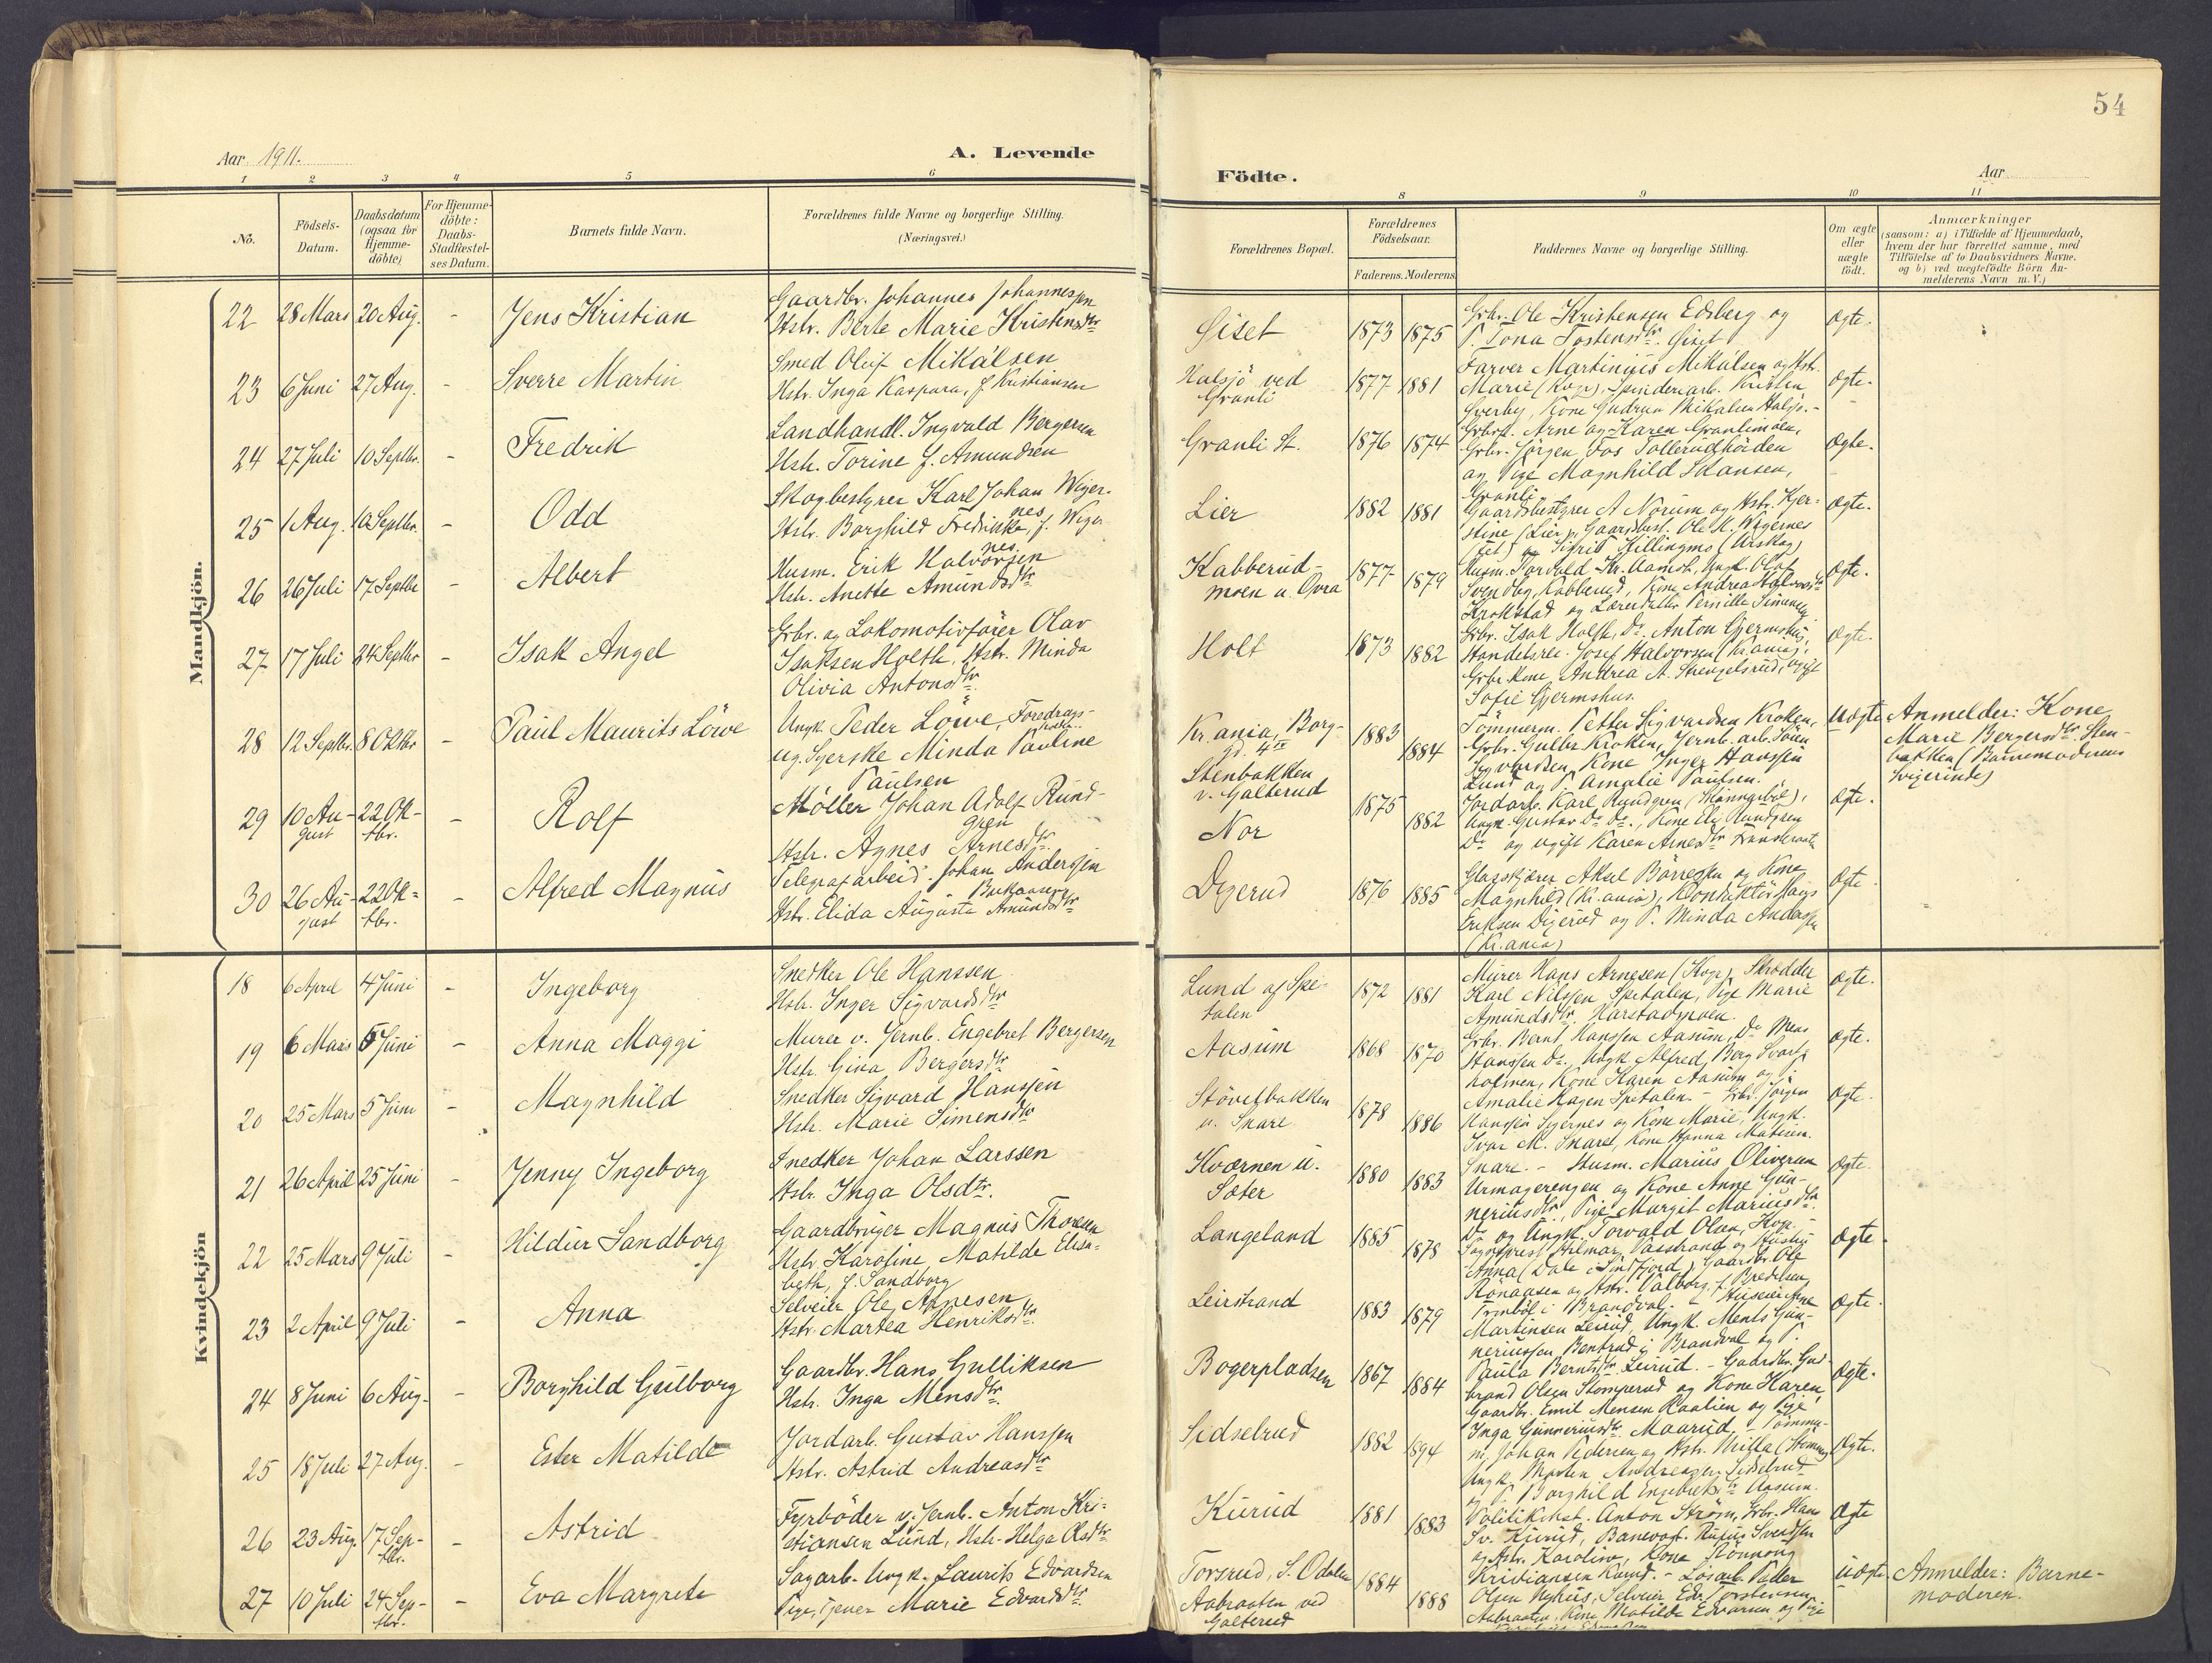 54
Aar 1911.
A. Levende
Födte.
Aar
1 2 3 4 5 6
8 9 10 11
No.
Födsels-
Datum.
Daabsdatum
(ogsaa for
Hjemme-
döbte)
For Hjemme-
döbte:
Daabs-
Stadfæstel-
ses Datum.
Barnets fulde Navn.
Forældrenes fulde Navne og borgerlige Stilling.
(Næringsvei.)
Forældrenes Bopæl.
Forældrenes
Födselsaar.
Faderens. Moderens
Faddernes Navne og borgerlige Stilling.
Om ægte
eller
uægte
födt.
Anmærkninger
(saasom: a) i Tilfælde af Hjemmedaab,
hvem der har forrettet samme, med
Tilföielse af to Daabsvidners Navne.
og b) ved uægtefödte Börn An-
melderens Navn m. V.)
Mandkjön.
22 28 Mars 20 Aug. - Jens Kristian
Gaardbr. Johannes Johannessen
Hstr. Berte Marie Kristensdtr
Giset 1873 1875
Grbr. Ole Kristensen Edsberg og
P. Tona Tostensdtr. Giset
Ægte.
23 6 Juni 27 Aug. - Sverre Martin
Smed Oluf Mikalsen
Hstr. Inga Kaspara, f. Kristiansen
Halsjö ved
Granli
1877 1881
Farver Martinius Mikalsen og Hstr.
Marie (Kvgr), Kristen
Sverby, Kone Gudrun Mikalsen Halsjö.-
Ægte.
24 27 Juli 10 Septbr. - Fredrik
Landhandl. Ingvald Bergersen
Hstr. Torine f. Amundsen
Granli St. 1876 1874
Arne og Karen Granlimoen,
Grbr. Jörgen Fos
og Pige Magnhild
Granli
Ægte.
25 1 Aug. 10 Septbr. - Odd
Skogbestyrer Karl Johan Weger-
nes
Hstr. Borghild Fredrikke, f. Weger-
nes
Lier 1882 1881
Gaardsbestyrer A Norum og Hstr. Kjer-
stine (Lier), Gaardsbest. Ole K. Wegernes
Sigrid Killingmo
Ægte.
26 26 Juli 17 Septbr - Albert
Husm. Erik Halvorsen
Hstr. Anette Amundsdtr
Kabberud-
moen u. Opsa
1877 1879
Husm. Torvald Kr. Aamot, Ungk. Olaf
Svendby, Kabberud, Kone Andrea Halvorsdtr
Krokstad og Pernille Simensen
Ægte.
27 17 Juli 24 Septbr - Isak Angel
Grbr. og Lokomotivförer Olav
Isaksen Holth, Hstr. Minda
Olivia Antonsdtr.
Holt 1873 1882
Grbr. Isak Holth, Do. Anton Gjermshus,
Handelsrei. Josef Halvorsen (Kr.ania),
Grbr. Kone Andrea A. Strengelsrud, ugift
Sofie Gjermshus.
Ægte.
28 12 Septbr. 8 Oktbr - Paul Maurits Löwe
Ungk. Peder Löwe, Foredrags-
holder
ug. Syerske Minda Pauline
Paulsen
Kr.ania, Borg-
gd. 4 IV
Stenbakken
v. Galterud
1883 1884
Tömmerm. Petter Sigvardsen Kroken,
Grbr. Gulbr. Kroken, Jernb. arb. Sören
Sigvardsen, Kone Inger Hanssen
Lund og P. Amalie Paulsen.
Uægte
Anmelder: Kone
Marie Bergersdtr. Sten-
bakken (Barnemoderens
Svigerinde)
29 10 Au-
gust
22 Ok-
tbr.
- Rolf
Möller Johan Adolf Rund-
gren
Hstr. Agnes Arnesdtr.
Nor 1875 1882
Jordarb. Karl Rundgren
Ungk. Gustav Do. Do., Kone Elie Rundgren
Do og ugift Karen Arnesdtr
Ægte.
30 26 Au-
gust
22 Ok-
tbr.
- Alfred Magnus
Telegrafarbeid. Johan Anderssen
Hstr. Elida Augusta Amundsdtr
Digerud 1876 1885
Axel Börresen og Kone
Magnhild (Kr.ania), Konduktör Hans
Eriksen Digerud og P. Minda Andersen
(Kr.ania)
Ægte.
Kvindekjön
18 6 April 4 Juni - Ingeborg
Snedker Ole Hanssen
Hstr. Inger Sigvardsdtr
Lund af Spe-
talen
1872 1881
Murer Hans Arnesen (Kvgr), Skrædder
Karl Nilssen Spetalen, Pige Marie
Amundsdtr. Harstadmoen.
Ægte.
19 6 Mars 5 Juni - Anna Maggi
Murer v. Jernb. Engebret Bergersen
Hstr. Gina Bergersdtr
Aasum 1868 1870
Grbr. Bernt Hanssen Aasum, Do Mens
Hanssen Do., Ungk. Alfred Berg Svart-
holmen, Kone Karen Aasum og
Amalie Hagen Spetalen.-
Ægte.
20 25 Mars 5 Juni - Magnhild
Snedker Sigvard Hanssen
Hstr. Marie Simensdtr
Stövelbakken
u. Snare
1878 1886
Grbr. Jörgen
Hanssen Syernes og Kone Marie, Ungk.
Ivar M. Snare, Kone Hanna Matisen
Snare.-
Ægte.
21 26 April 25 Juni - Jenny Ingeborg
Snedker Johan Larssen
Hstr. Inga Olsdtr.
Kværnen u.
Sæter
1880 1883
Husm. Marius Oliversen
Urmagerengen og Kone Anne Gun-
neriusdtr, Pige Margit Mariusdtr.
Do og Ungk. Torvald Olsen, Kvgr.-
Ægte.
22 25 Mars 9 Juli - Hildur Sandborg
Gaardbruger Magnus Thoresen
Hstr Karoline Matilde Elisa-
beth, f. Sandborg
Langeland 1885 1878
Sogneprest Hilmar Vasstrand og Hustru
Anna (Dale i Söndfjord), Gaardbr. Ole
Rönaasen og Hstr. Valborg, f. Bredesen,
i Brandval.-
Ægte.
23 2 April 9 Juli - Anna
Selveier Ole Arnesen
Hstr. Martea Henriksdtr.
Leirstrand 1883 1879
Huseier Arne
Martinsen Leirud, Ungk. Ments Gun-
neriussen Bentrud i Brandval og P.
Paula Berntsdtr. Leirud.-
Ægte.
24 8 Juni 6 Aug. - Borghild Gulborg
Gaardbr. Hans Gulliksen
Hstr. Inga Mensdtr.
Bogerpladsen 1867 1884
Gaardbr. Gud-
brand Olsen Stomperud og Kone Karen,
Gaardbr. Emil Mensen Raalien og Pige
Inga Gunneriusdtr. Maarud.
Ægte.
25 18 Juli 27 Aug. - Ester Matilde
Jordarb. Gustav Hanssen
Hstr. Astrid Andreasdtr
Sidselrud 1882 1894
Tömmer-
m. Johan Pedersen og Hstr. Milla
Ungk. Morten Andreassen Sidselrud
og P. Borghild Engebretsdtr Aasum.
Ægte.
26 23 Aug. 17 Sep-
tbr.
- Astrid
Fyrböder v. Jernb. Anton Kri-
stiansen Lund, Hstr. Helga Olsdtr
Kurud 1881 1883
Politikonst. Anton Ström, Grbr. Hans
Sv. Kurud, Banevogt. Rufus Svendsen
og Hstr. Karoline, Kone Rönnaug
Kristiansen Kurud.-
Ægte
27 10 Juli 24 Sep-
tbr.
- Eva Margrete
Sagarb. Ungk. Laurits Edvardsen
Pige, tjener Marie Edvardsdtr
Torsrud, S. Odalen
Aabraaten ved
Galterud
1884 1888
Lösarb. Peder
Olsen Nyhus, Selveier Edv. Torstensen
Aabraaten, Kone Matilde Edvarsen og Pige
Uægte.
Anmelder: Barne-
moderen.